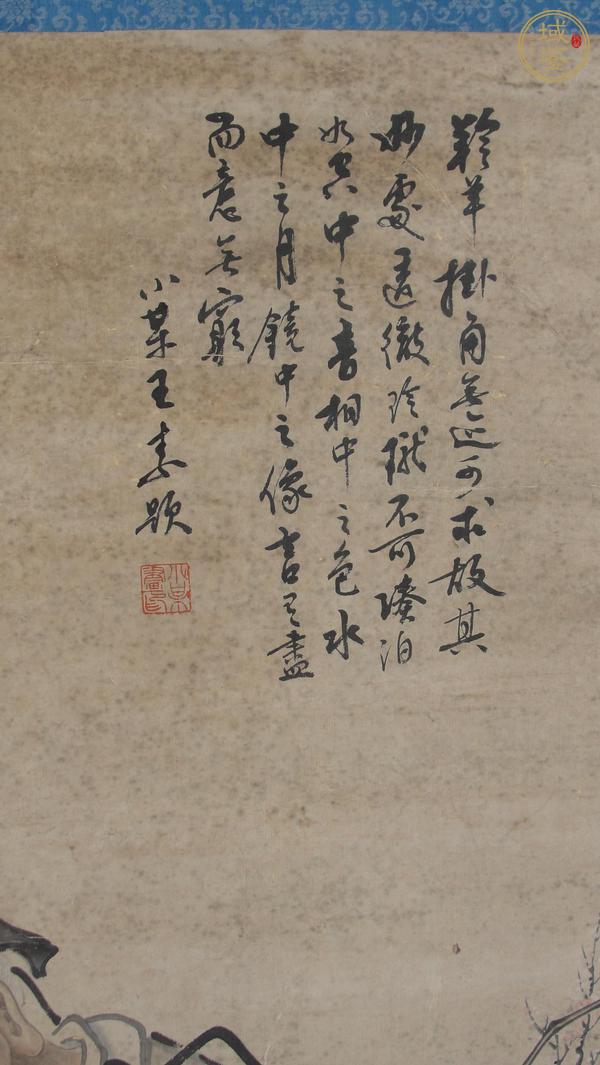 羚羊掛角無迹可求故其
妙處透徹玲瓏不可湊泊
如空中之音相中之色水
中之月鏡中之像言有盡
而意無窮
小某王素題
小某畫印